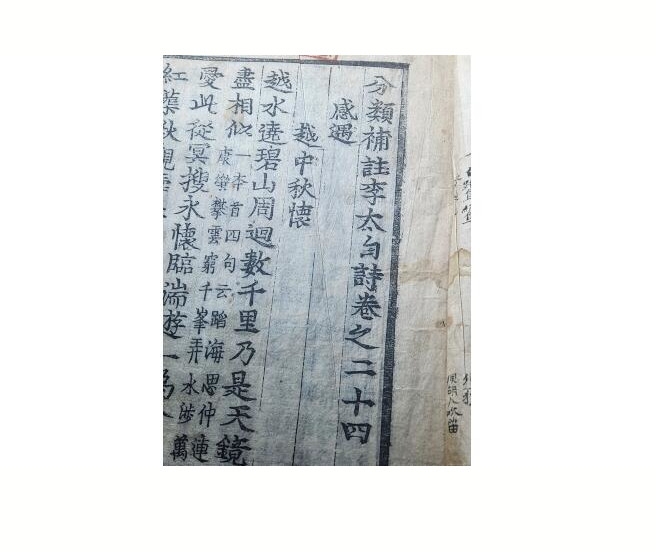 分類補註李太白詩卷之二十四
感遇
越中秋懷
越水遶碧山周迴數千里乃是天鏡
盡相似
一本首四句云蹈海思仲連
康樂攀雲窮千峯弄水涉萬
愛此從冥搜永懷臨湍遊一為
紅蕖秋觀